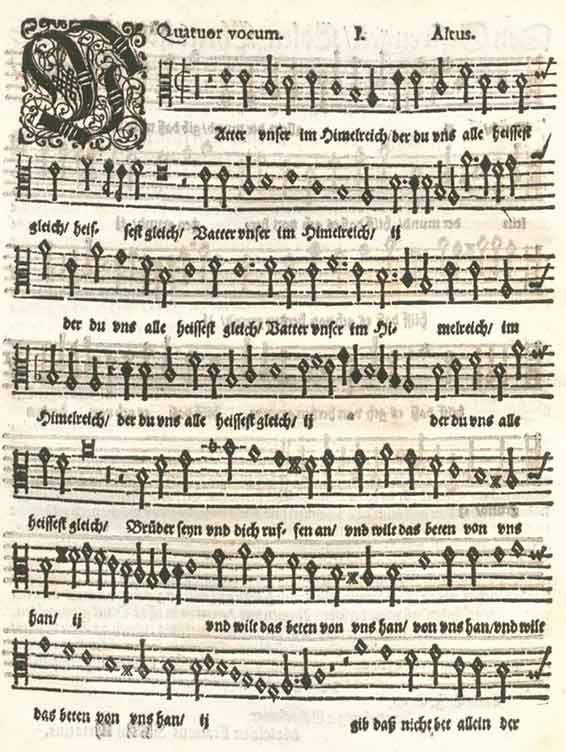 Quatuor vocum. I. Altus.
VAtter vnser im Himelreich/ der du vns alle heissest
gleich/ heis- sest gleich/ Vatter vnser im Himelreich/ ij
der du vns alle heissest gleich/ Vatter vnser im Hi- melreich/ im
Himelreich/ der du vns alle heissest gleich/ ij der du vns alle
heissest gleich/ Brüder seyn vnd dich ruf- fen an/ vnd wilt das beten von vns
han/ ij vnd wilt das beten von vns han/ von vns han/ vnd wilt
das beten von vns han/ ij gib daß nicht bet allein der